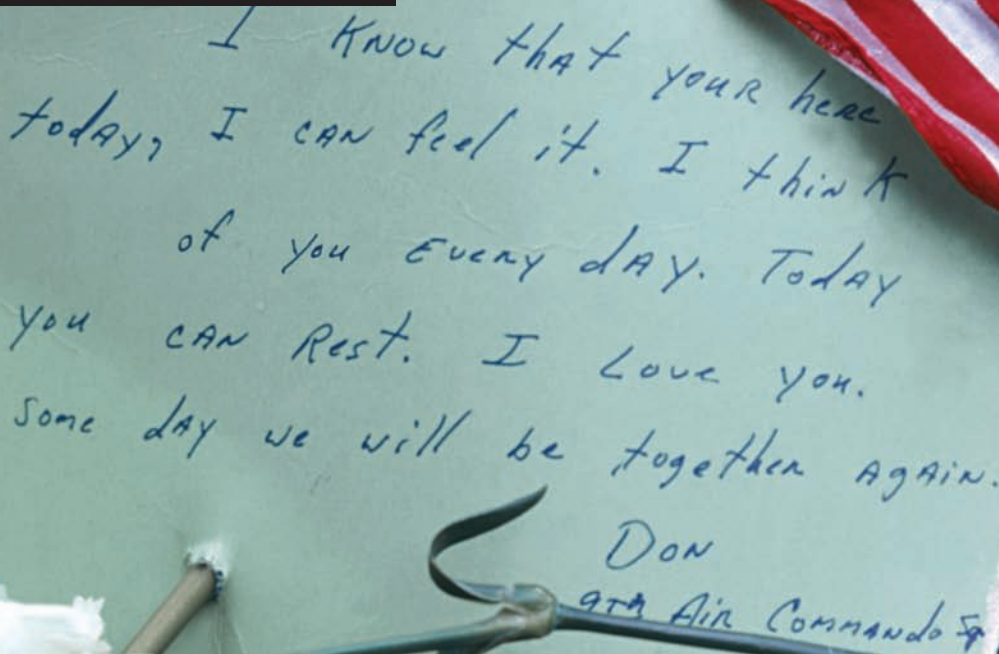 I KNOW that your here
today, I CAN feel it. I think
of you Every day. Today
you CAN Rest. I Love you.
Some day we will be together AgAin.
DON
9th Air Commando Sq